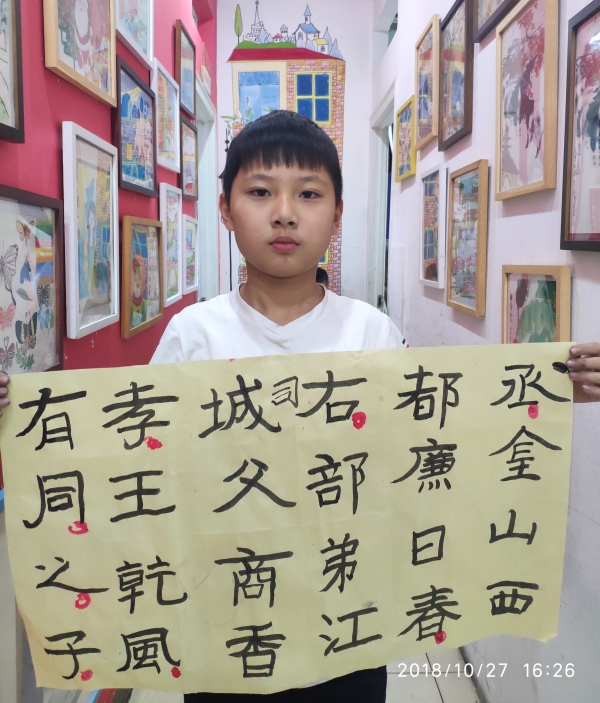 丞山西
都廉日春
右部弟江
司
城父商香
孝王乾風
有同之子
2018/10/27 16:26